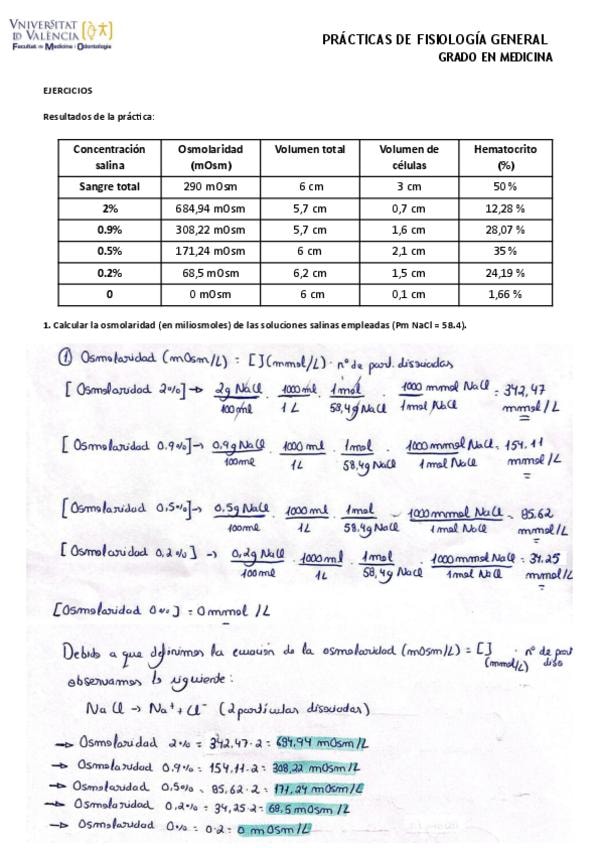 VNIVERSITAT
ID VALÈNCIA
Facultat de Medicina i Odontologia
PRÁCTICAS DE FISIOLOGÍA GENERAL
GRADO EN MEDICINA
EJERCICIOS
Resultados de la práctica:
Concentración salina Osmolaridad (mOsm) Volumen total Volumen de células Hematocrito (%)
Sangre total 290 mOsm 6 cm 3 cm 50 %
2% 684,94 mOsm 5,7 cm 0,7 cm 12,28 %
0.9% 308,22 mOsm 5,7 cm 1,6 cm 28,07 %
0.5% 171,24 mOsm 6 cm 2,1 cm 35 %
0.2% 68,5 mOsm 6,2 cm 1,5 cm 24,19 %
0 0 mOsm 6 cm 0,1 cm 1,66 %
1. Calcular la osmolaridad (en miliosmoles) de las soluciones salinas empleadas (Pm NaCl = 58.4).
① Osmolaridad (mOsm/L) = [ ](mmol/L) · nº de part. disociadas
[Osmolaridad 2%] → 2g NaCl / 100ml · 1000ml / 1L · 1mol / 58,4g NaCl · 1000 mmol NaCl / 1mol NaCl = 342,47 mmol/L
[Osmolaridad 0.9%] → 0,9g NaCl / 100ml · 1000ml / 1L · 1mol / 58.4g NaCl · 1000mmol NaCl / 1mol NaCl = 154.11 mmol/L
[Osmolaridad 0,5%] → 0,5g NaCl / 100ml · 1000ml / 1L · 1mol / 58.4g NaCl · 1000mmol NaCl / 1mol NaCl = 85.62 mmol/L
[Osmolaridad 0,2%] → 0,2g NaCl / 100ml · 1000ml / 1L · 1mol / 58,4g NaCl · 1000mmol NaCl / 1mol NaCl = 34.25 mmol/L
[Osmolaridad 0%] = 0 mmol/L
Debido a que definimos la ecuación de la osmolaridad (mOsm/L) = [ ] (mmol/L) · nº de part diso
observamos lo siguiente:
NaCl → Na⁺ + Cl⁻ (2 partículas disociadas)
→ Osmolaridad 2% = 342,47·2 = 684,94 mOsm/L
→ Osmolaridad 0.9% = 154.11·2 = 308,22 mOsm/L
→ Osmolaridad 0,5% = 85.62·2 = 171,24 mOsm/L
→ Osmolaridad 0,2% = 34,25·2 = 68,5 mOsm/L
→ Osmolaridad 0% = 0·2 = 0 mOsm/L